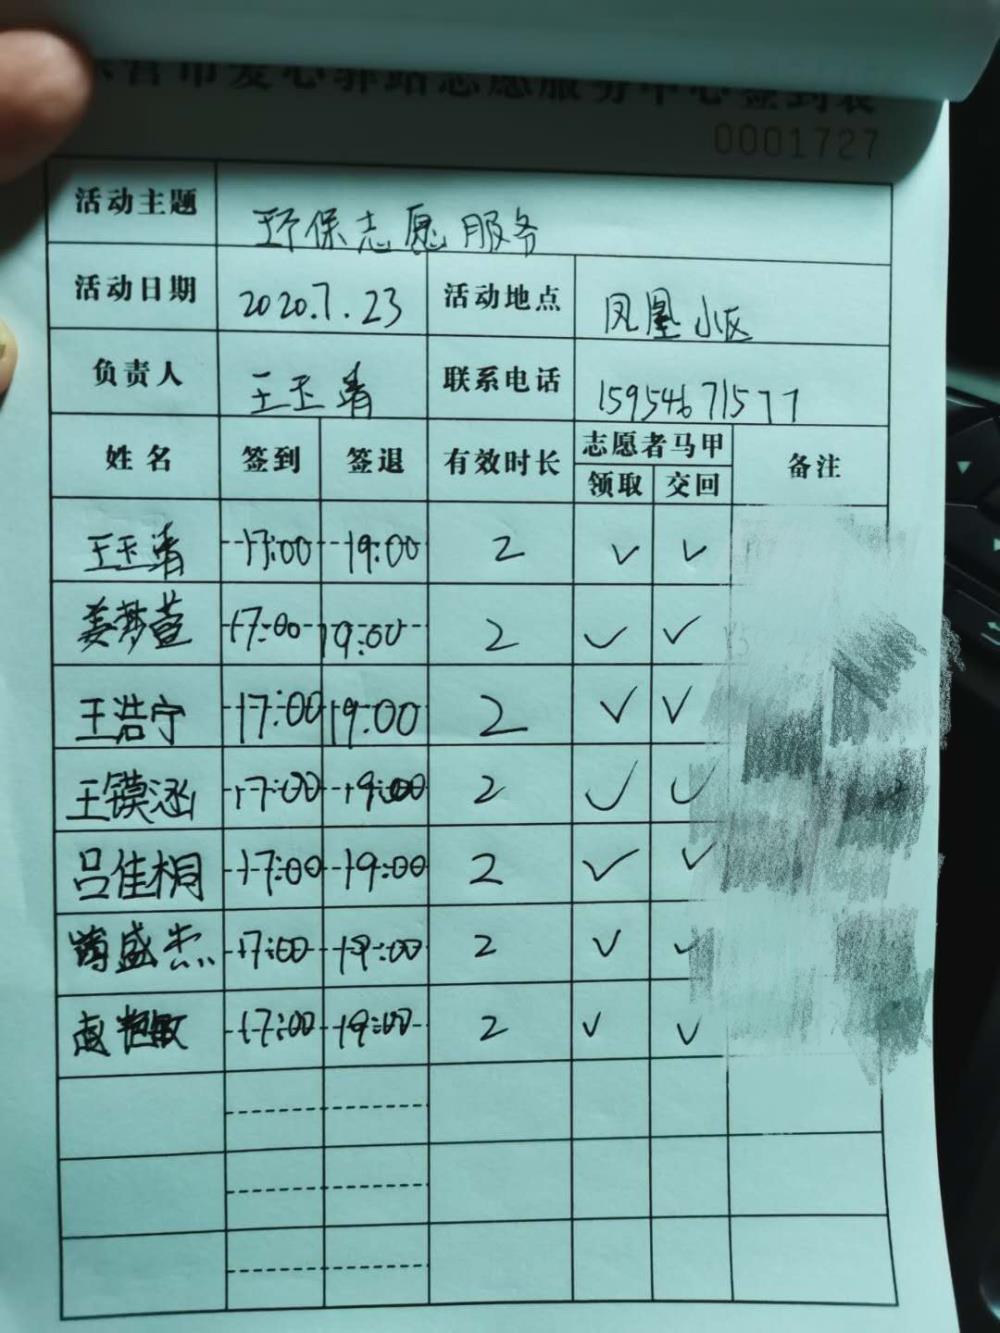 东营市爱心驿站志愿服务中心签到表
0001727
活动主题 环保志愿服务
活动日期 2020.7.23 活动地点 凤凰小区
负责人 王玉清 联系电话 15954671577
姓名 签到 签退 有效时长 志愿者马甲 备注
领取 交回
王玉清 17:00 19:00 2 ✓ ✓
姜梦萱 17:00 19:00 2 ✓ ✓
王浩宁 17:00 19:00 2 ✓ ✓
王镆涵 17:00 19:00 2 ✓ ✓
吕佳桐 17:00 19:00 2 ✓ ✓
盛杰 17:00 19:00 2 ✓ ✓
17:00 19:00 2 ✓ ✓